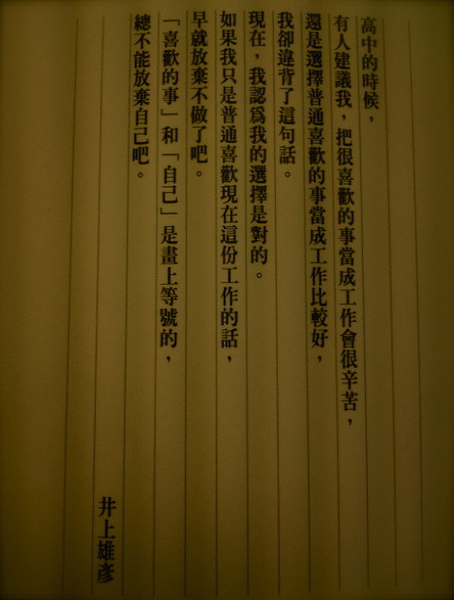 高中的時候，
有人建議我，把很喜歡的事當成工作會很辛苦，
還是選擇普通喜歡的事當成工作比較好，
我卻違背了這句話。
現在，我認為我的選擇是對的。
如果我只是普通喜歡現在這份工作的話，
早就放棄不做了吧。
「喜歡的事」和「自己」是畫上等號的，
總不能放棄自己吧。
井上雄彥